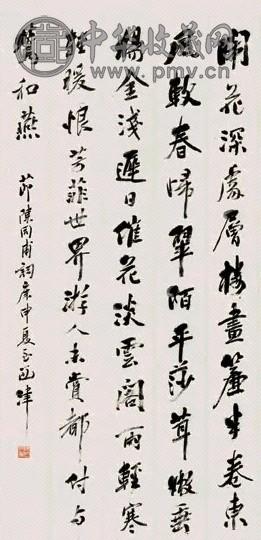 鬧花深處層樓畫簾半卷東
風軟春歸翠陌平莎茸嫩垂
楊金淺遲日催花淡雲閣雨輕寒
輕暖恨芳菲世界游人未賞都付与
鶯和燕
節陳同甫詞庚申夏
收藏网
www.pmv.cn